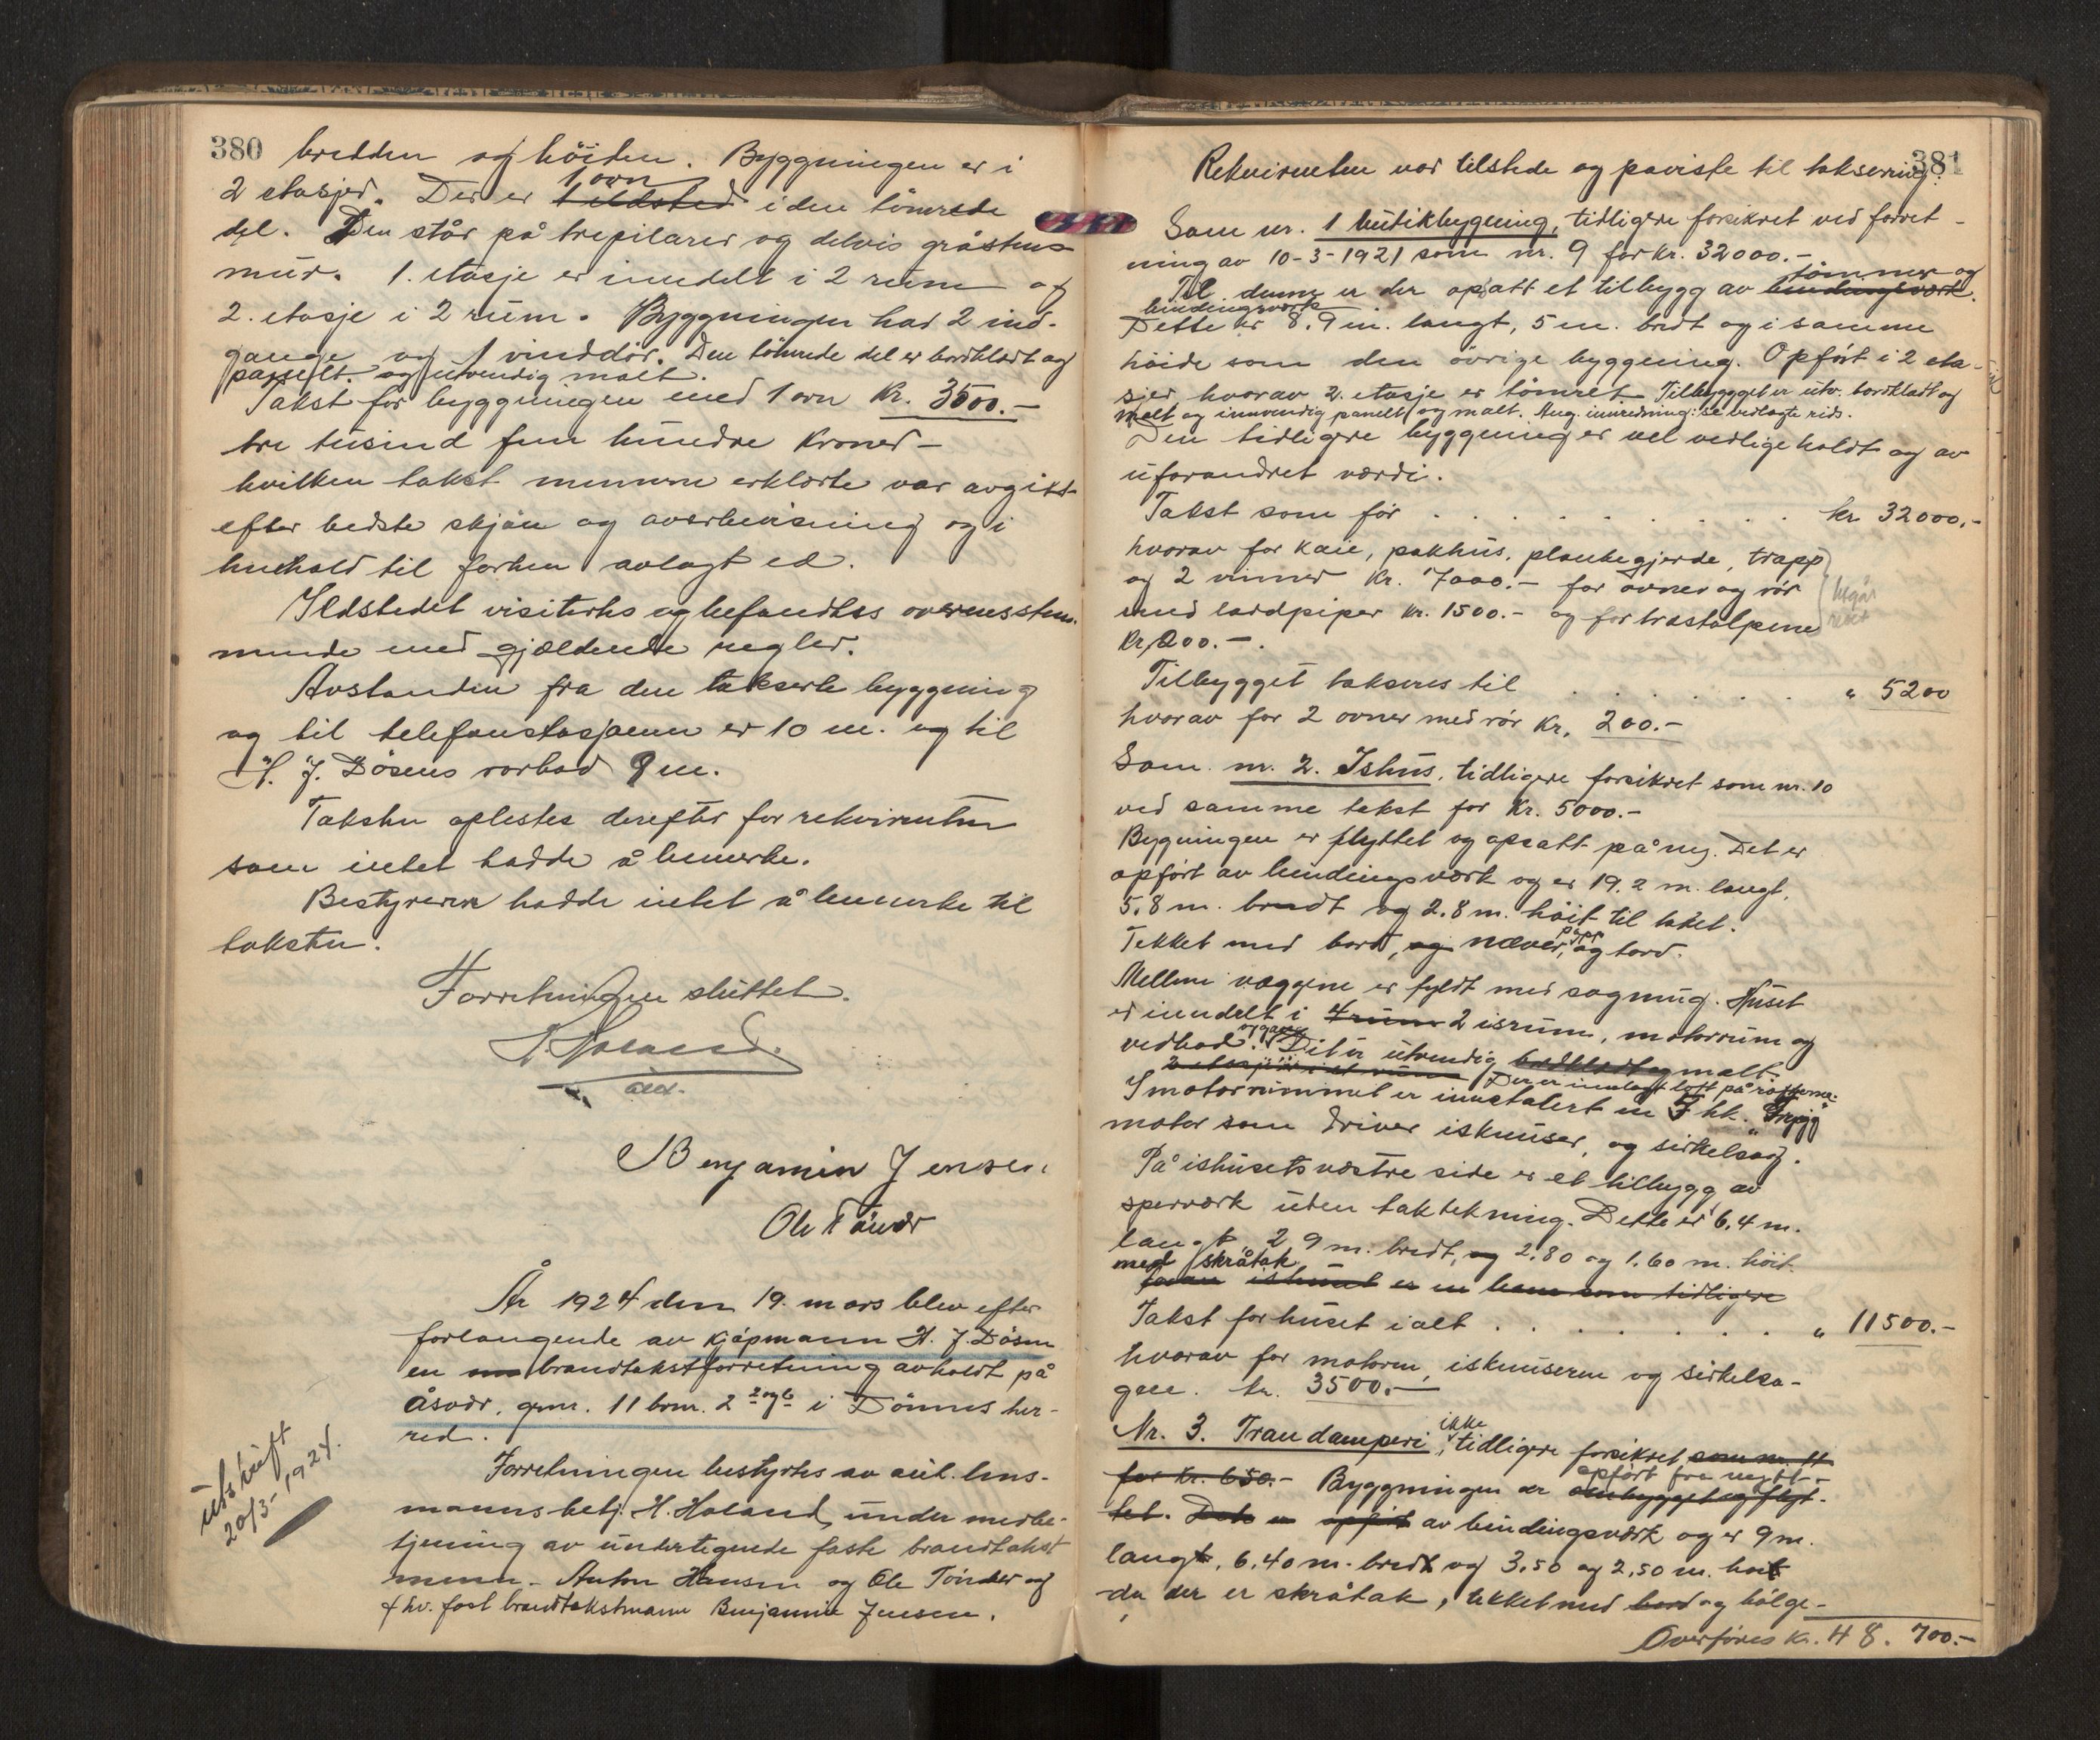 380
bredden og höiden. Byggningen er i
2 etasjer. Der er 1 ovn 1 ildsted i den tömrede
del. Den står på trepilarer og delvis gråstens
mur. 1. etasje er inndelt i 2 rum og
2. etasje i 2 rum. Byggningen har 2 ind-
gange og 1 vinddör. Den tömrede del er bordklædt og
panelt og utvendig malt.
Takst for byggningen med 1 ovn Kr. 3500.-
tre tusind fem hundre Kroner -
hvilken takst mennene erklærte var avgitt
efter bedste skjön og overbevisning og i
henhold til forhen avlagt ed.
Ildstedet visitertes og befandtes overensstem-
mende med gjældende regler.
Avstanden fra den takserte byggning
og til telefonstasjonen er 10 m. og til
H. J. Dösens rorbod 9 m.
Taksten oplestes derefter for rekvirenten
som intet hadde å bemerke.
Bestyreren hadde intet å bemerke til
taksten.
Forretningen sluttet.
H. Haland.
aut.
Benjamin Jensen
Ole Tönder
År 1924 den 19. mars blev efter
forlangende av kjöpmann H. J. Dösen
en brandtakstforretning avholdt på
Åsvær, gnr. 11 brn. 2 2 og 6 i Dönnes her-
red.
Forretningen bestyrtes av aut. lens-
mannsbetj. H. Haland, under medbe-
tjening av undertegnede faste brandtakst
menn - Anton Hansen og Ole Tönder og
fhv. fast brandtakstmann Benjamin Jensen.
utskrift
20/3-1924.
381
Rekvirenten var tilstede og paviste til taksering:
Som nr. 1 butikbygning, tidligere forsikret ved forret-
ning av 10-3-1921 som nr. 9 for kr. 32000.-
Til denne er der opsatt et tilbygg av bindingsverk tömmer og
bindingsverk
Dette er 8.9 m. langt, 5 m. bredt og i samme
höide som den övrige byggning. Opfört i 2 eta-
sjer hvorav 2. etasje er tömret. Tilbygget er utv. bordklædt og
malt og innvendig panelt og malt. Ang. innredning: se vedlagte rids.
Den tidligere byggning er vel vedlikeholdt og av
uforandret værdi.
Takst som för . . . . . . . . . kr 32000.-
hvorav for kaie, pakhus, plankegjerde, trapp
og 2 vinner Kr. 7000.- for ovner og rör
med jordpiper kr. 1500.- og for trastolpene
Kr. 200.-.
Tilbygget takseres til . . . . . . " 5200
hvorav for 2 ovner med rör Kr. 200.-
Som nr. 2. Ishus, tidligere forsikret som nr. 10
ved samme takst for Kr. 5000.-
Bygningen er flyttet og opsatt på ny. Det er
opfört av bindingsværk og er 19.2 m. langt,
5.8 m. bredt og 2.8 m. höit til taket.
Tekket med bord, og næver, papp og torv.
Mellem væggene er fyldt med sagmug. Huset
er inndelt i 4 rum 2 isrum, motorrum og
vedbod og gang. Det er utvendig bordklædt og malt
Der er innlagt loft på røsterne.
I motorrummet er innstalert en 7 hk. "Grepp"
motor som driver isknuser, og sirkelsag.
På ishusets vestre side er et tilbygg av
sperværk uten taktekning. Dette er 6.4 m.
langt, 2.9 m. bredt, og 2.80 og 1.60 m. höit.
med skråtak
foran ishuset er en tidligere
Takst for huset ialt . . . . . . . " 11500.-
hvorav for motoren, isknuseren og sirkelsa-
gen. kr. 3500.-
Nr. 3. Trandamperi, ikke tidligere forsikret som nr. 11
for kr. 650.- Byggningen er opfört fra nytt ombygget og flyt-
tet. Det er opfört av bindingsværk og er 9 m.
langt, 6.40 m. bredt og 3.50 og 2.50 m. höit
da der er skråtak, tekket med bord og bölge-
Overföres kr. 48.700.-